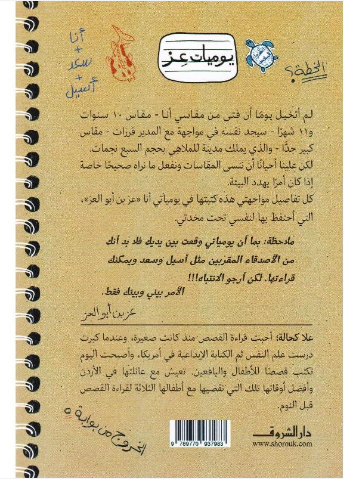 أنا
+
سعد
+
أسيل
يوميات عز
الخطة؟
لم أتخيل يومًا أن فتى من مقاسي أنا - مقاس ١٠ سنوات
و١١ شهرًا - سيجد نفسه في مواجهة مع المدير فرزات - مقاس
كبير جدًا - والذي يملك مدينة للملاهي بحجم السبع نجمات.
لكن علينا أحيانًا أن ننسى المقاسات ونفعل ما نراه صحيحًا خاصة
إذا كان أمرًا يهدد البيئة.
كل تفاصيل مواجهتي هذه كتبتها في يومياتي أنا «عز بن أبو العز»،
التي أحتفظ بها لنفسي تحت مخدتي.
ملاحظة: بما أن يومياتي وقعت بين يديك فلا بد أنك
من الأصدقاء المقربين مثل أسيل وسعد ويمكنك
قراءتها. لكن أرجو الانتباه!!!
الأمر بيني وبينك فقط.
عز بن أبو العز
علا كحالة: أحبت قراءة القصص منذ كانت صغيرة، وعندما كبرت
درست علم النفس ثم الكتابة الإبداعية في أمريكا، وأصبحت اليوم
تكتب قصصًا للأطفال واليافعين. تعيش مع عائلتها في الأردن
وأفضل أوقاتها تلك التي تقضيها مع أطفالها الثلاثة لقراءة القصص
قبل النوم.
الخروج من بوابة ٥
9 789770 937983
دار الشروق
www.shorouk.com